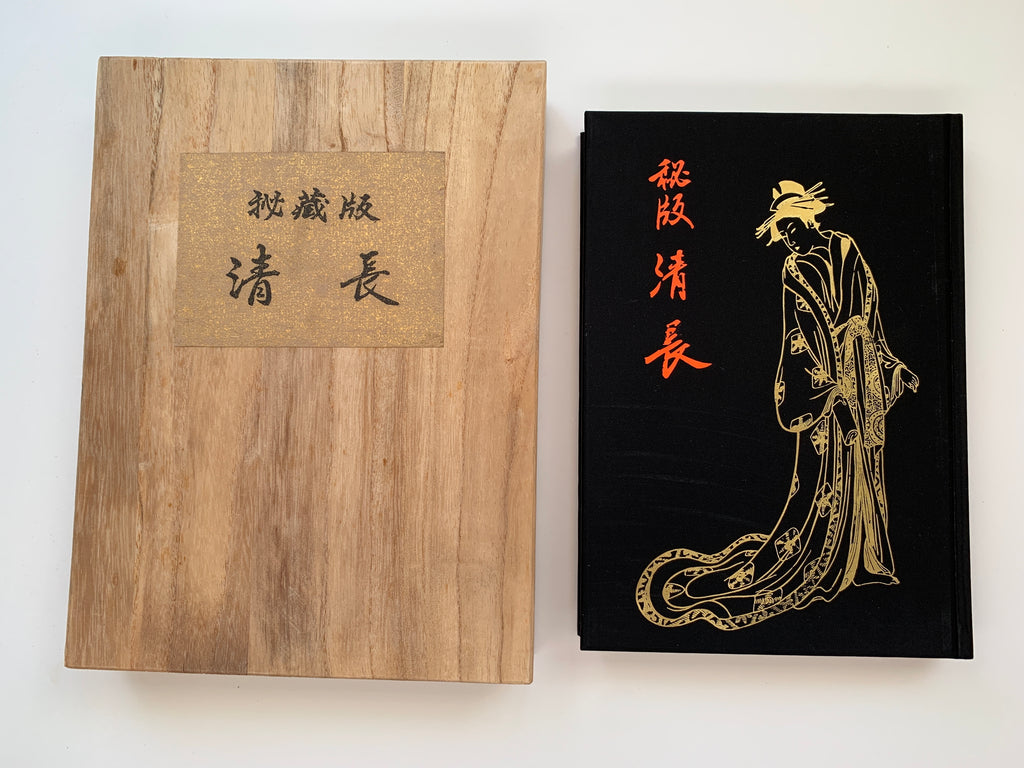 秘蔵版
清長
秘版 清長